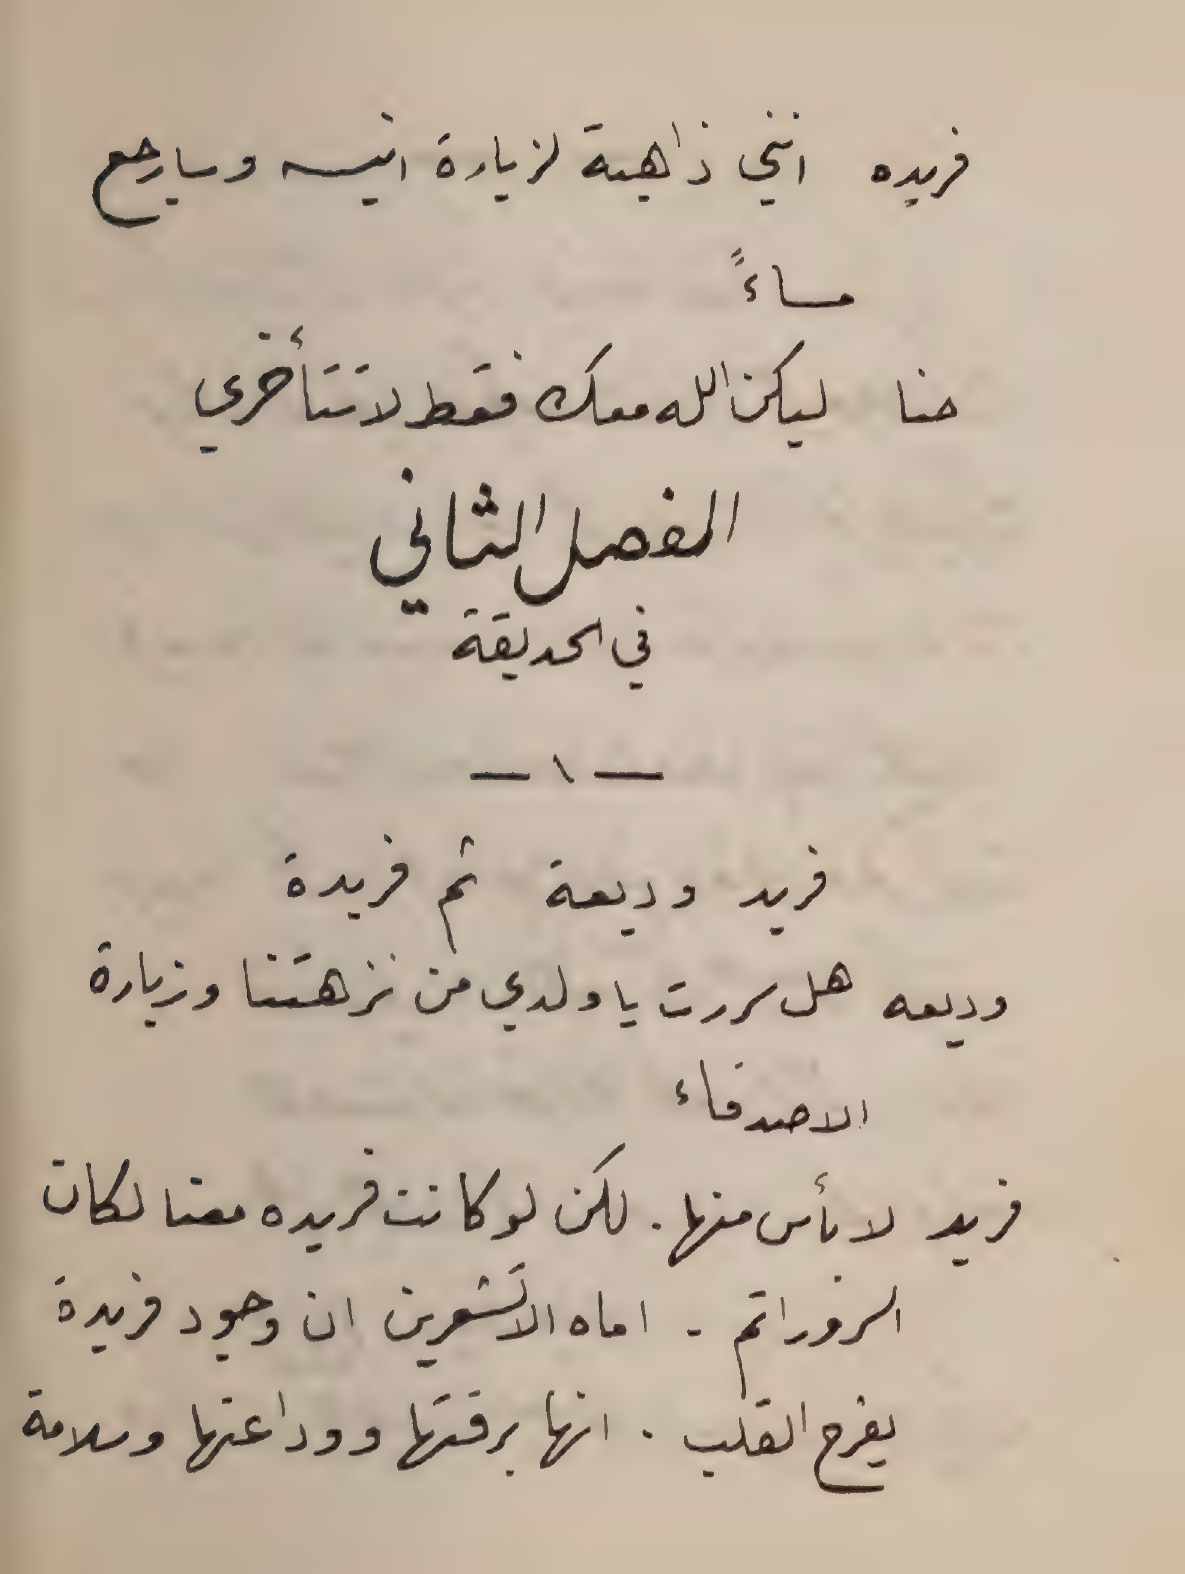 فريده انني ذاهبة لزيارة انيسه وسارجع
مساءً
حنا ليكن الله معك فقط لا تتأخري
الفصل الثاني
في الحديقة
— ١ —
فريد وديعة ثم فريدة
وديعه هل سررت يا ولدي من نزهتنا وزيارة
الاصدقاء
فريد لا بأس منها. لكن لو كانت فريده معنا لكان
السرور اتم - اماه الا تشعرين ان وجود فريدة
يفرح القلب. انها برقتها ووداعتها وسلامة